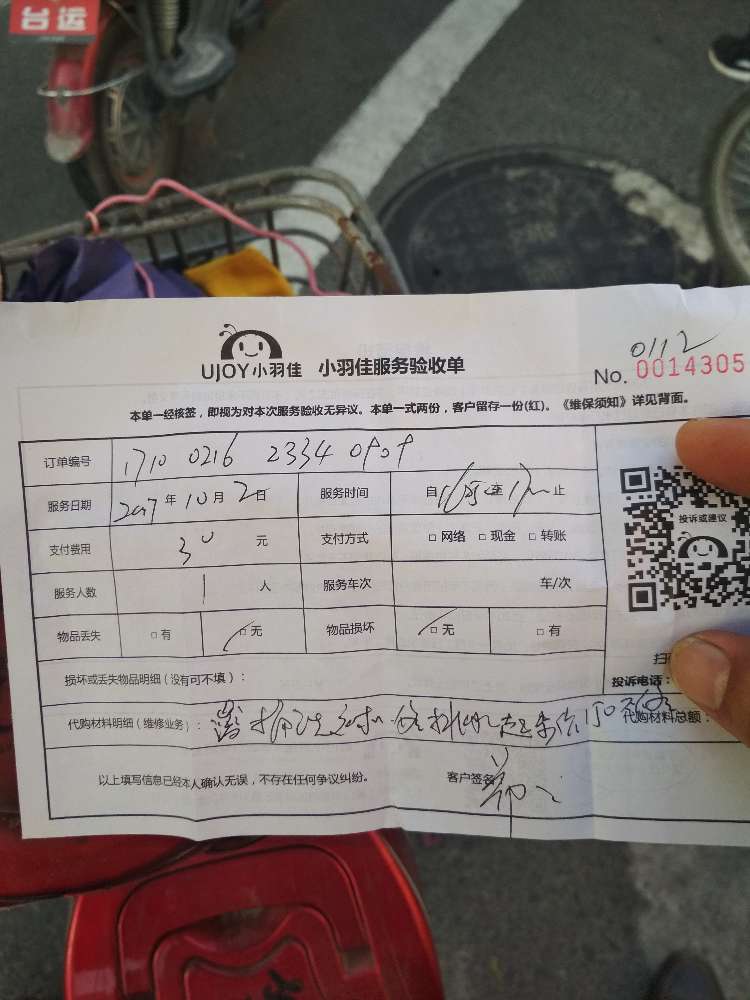 台运
UJOY小羽佳 小羽佳服务验收单
0112
No. 0014305
本单一经核签，即视为对本次服务验收无异议。本单一式两份，客户留存一份(红)。《维保须知》详见背面。
订单编号 1710 0216 2334 0909
服务日期 2017年10月2日 服务时间 自 至 止
支付费用 30 元 支付方式 □网络 □现金 □转账
服务人数 1 人 服务车次 车/次
物品丢失 □有 □无 物品损坏 □无 □有
投诉或建议
扫
投诉电话：
损坏或丢失物品明细（没有可不填）：
代购材料明细（维修业务）： 代购材料总额：
以上填写信息已经本人确认无误，不存在任何争议纠纷。 客户签名：